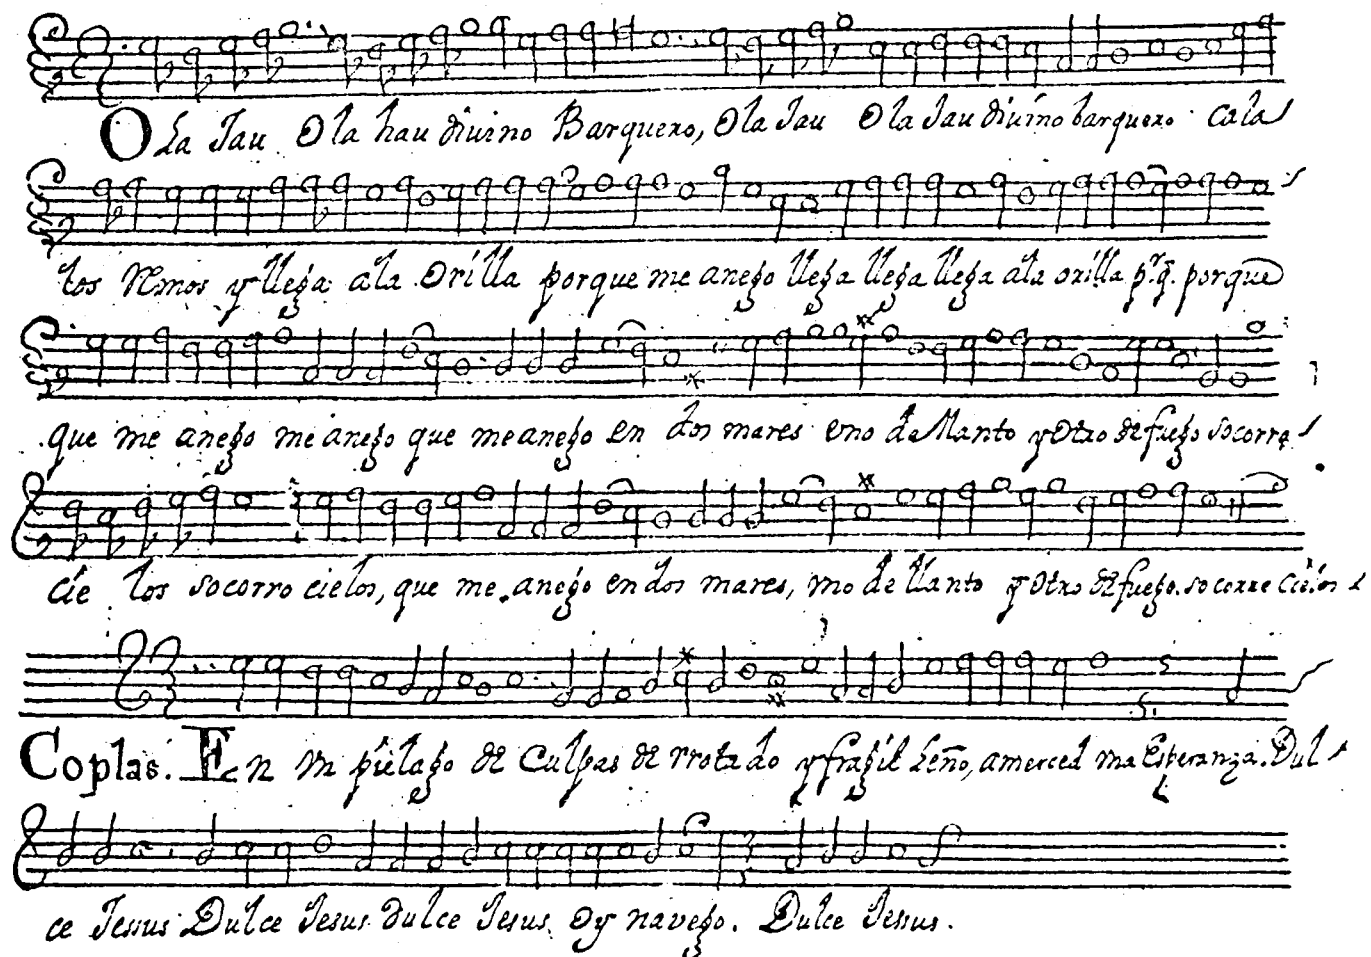 Ola Jau Ola hau diuino Barquero, Ola Jau Ola Jau diuino barquero cala
los Remos y llega ala Orilla porque me anego llega llega llega ala orilla pr.q. porque
que me anego me anego que me anego en dos mares vno de llanto y Otro de fuego socorro
cie los socorro cielos, que me anego en dos mares, vno de llanto y Otro de fuego. socorre cielos
Coplas. En vn pielago de Culpas de rrotado y fragil Leño, amerced vna Esperanza. Dul
ce Jesus Dulce Jesus dulce Jesus oy navego. Dulce Jesus.